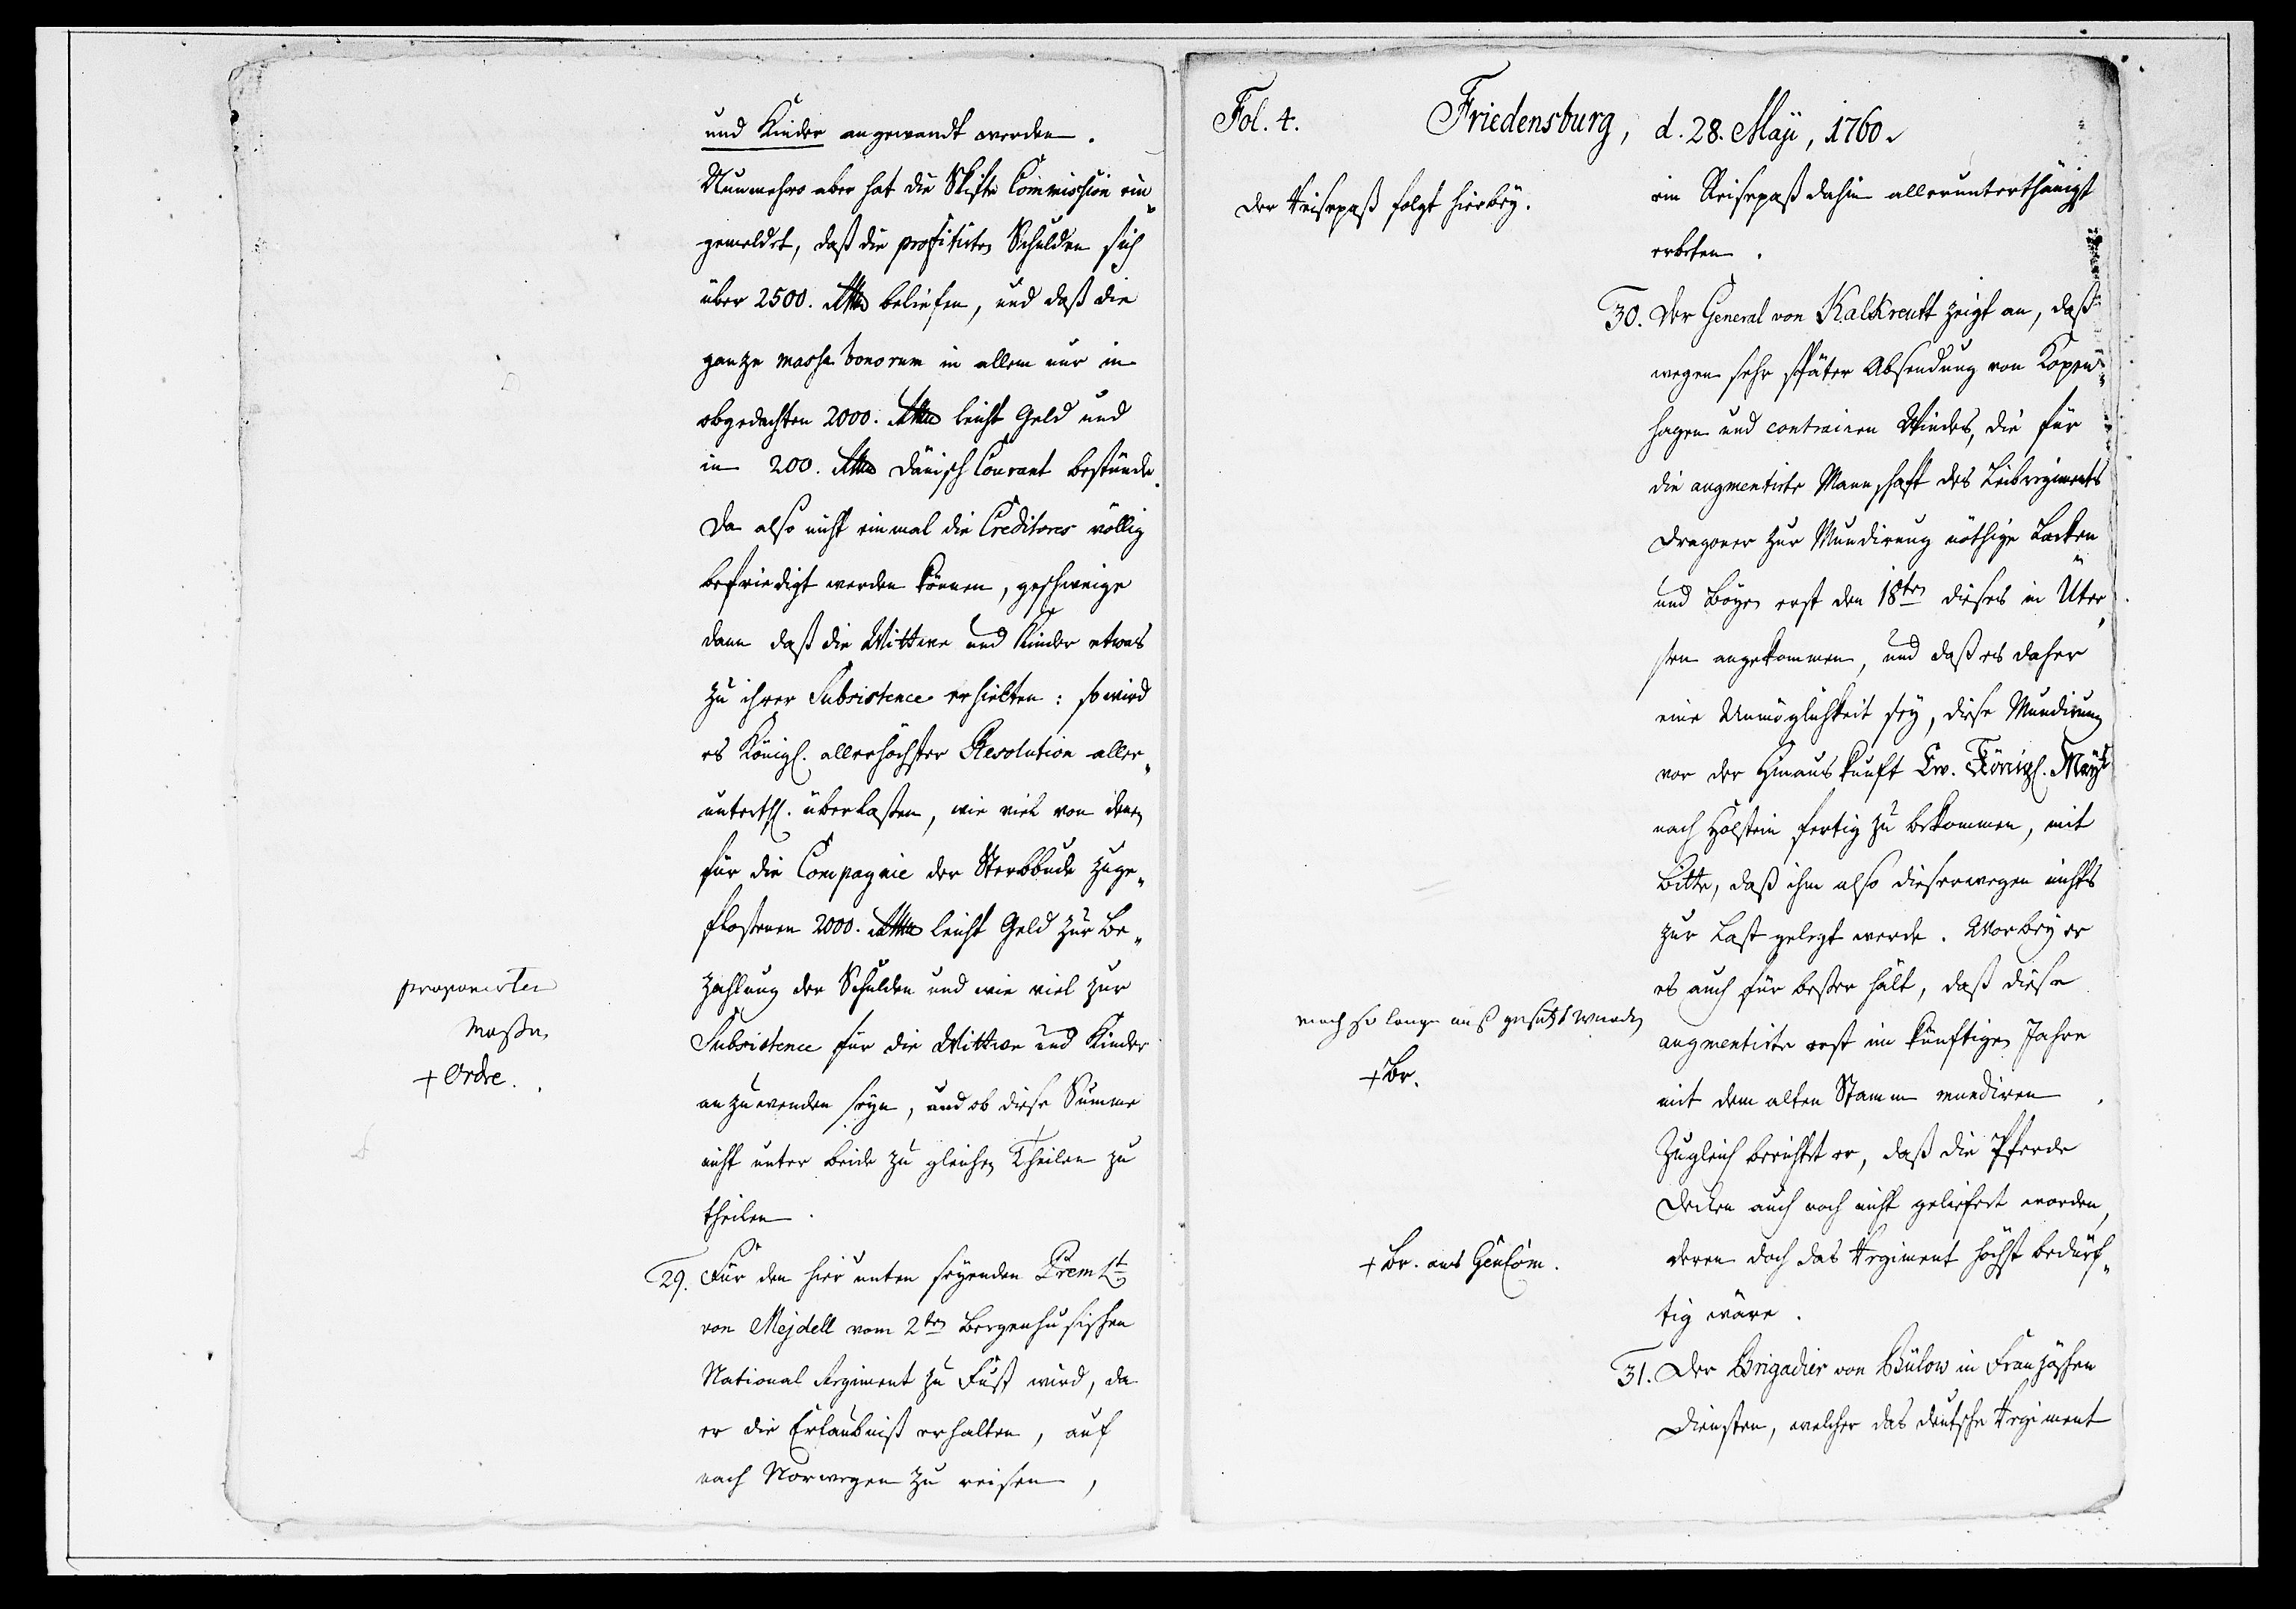 und Kinder angewandt werden.
Nunmehro aber hat die Skifte Commission ein„
gemeldet, daß die profitirte Schulden sich
über 2500. Rthlr beliefen, und daß die
ganze massa bonorum in allem nur in
obgedachten 2000. Rthlr leicht Geld und
in 200. Rthlr Dänisch Courant bestünde.
Da also nicht einmal die Creditores völlig
befriedigt werden können, geschweige
dann daß die Wittwe und Kinder etwas
zu ihrer Subsistence erhielten: so wird
es Königl. allerhöchster Resolution aller„
unterth. überlaßen, wie viel von denen
für die Compagnie der Sterbbude zuge„
floßenen 2000. Rthlr leicht Geld zur Be„
zahlung der Schulden und wie viel zur
Subsistence für die Wittwe und Kinder
anzuwenden seyn, und ob diese Summe
nicht unter beide zu gleichen Theilen zu
theilen.
proponirter
maßen
+ Ordre.
29. Für den hier unten seyenden Prem Lt
von Mejdell vom 2ten Bergenhusischen
National Regiment zu Fuß wird, da
er die Erlaubniß erhalten, auf
nach Norwegen zu reisen,
Fol. 4. Friedensburg, d. 28. Maji, 1760.
Der Reisepaß folgt hierbey.
ein Reisepaß dahin allerunterthänigst
erbeten.
30. Der General von Kalkreutt zeigt an, daß
wegen sehr später Absendung von Kopen„
hagen und contrairen Windes, die für
die augmentirte Mannschaft des Leibregiments
Dragoner zur Mundirung nöthige Laken
und Boyen erst den 18ten dieses in Üter„
sen angekommen, und daß es daher
eine Unmöglichkeit sey, diese Mundirung
vor der Hinauskunft Ew. Königl. Mayt
nach Holstein fertig zu bekommen, mit
Bitte, daß ihm also dieserwegen nichts
zur Last gelegt werde. Worbey er
es auch für beßer hält, daß diese
augmentirte erst im künftigen Jahre
mit dem alten Stamm mundiren.
mach so lange auß gesetzt werden
+ Br.
Zugleich berichtet er, daß die Pferde
Decken auch noch nicht geliefert worden,
deren doch das Regiment höchst bedürf„
tig wäre.
+ Br. ans GenCom.
31. Der Brigadier von Bülow in Französchen
Diensten, welcher das deutsche Regiment